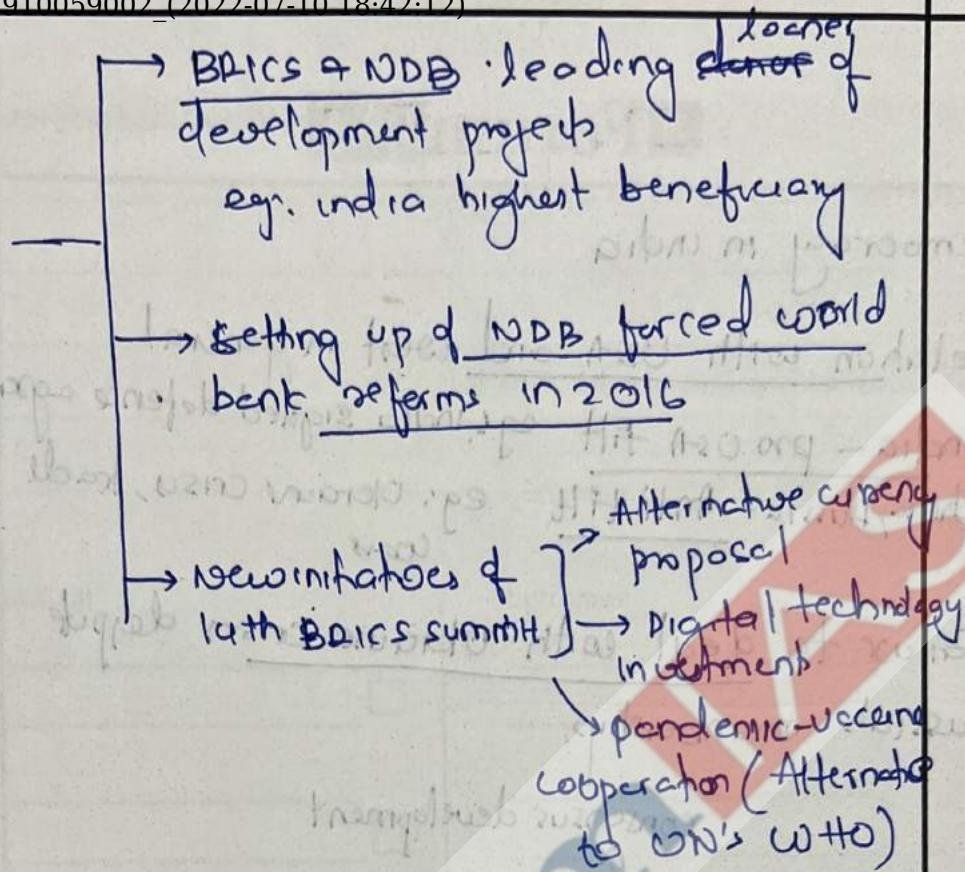 910059002_(2022-07-10 18:42:12)
loaner
→ BRICS & NDB · leading donor of
development projects
eg. india highest beneficiary
→ setting up of NDB forced world
bank reforms in 2016
→ New initiatives of
14th BRICS summit
→ Alternative currency
proposal
→ Digital technology
investments
→ pandemic-vaccine
cooperation (Alternate
to UN's WHO)
IAS